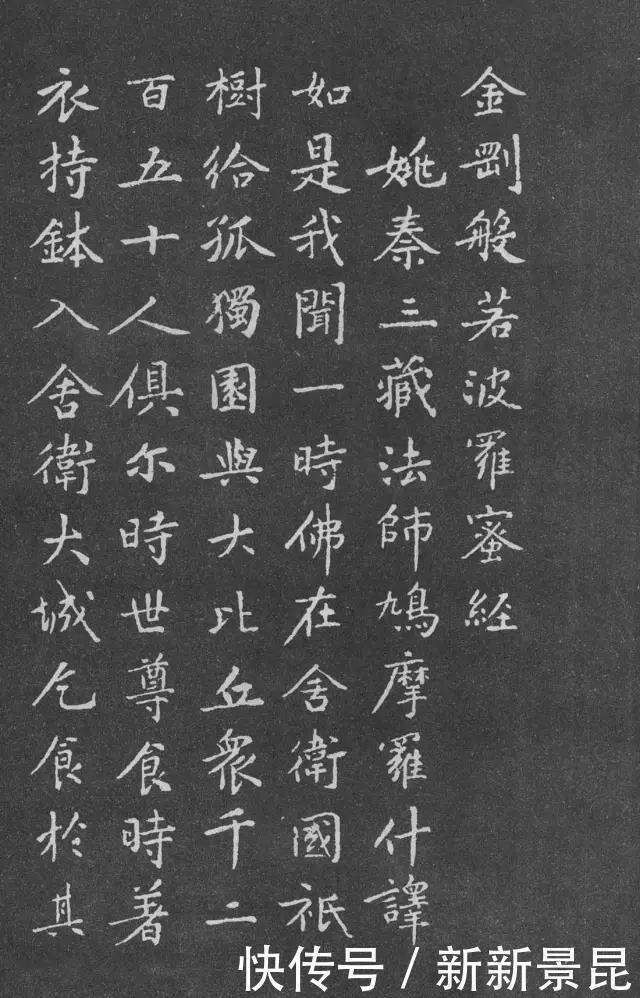 金剛般若波羅蜜經
姚秦三藏法師鳩摩羅什譯
如是我聞一時佛在舍衛國祇
樹給孤獨園與大比丘眾千二
百五十人俱尔時世尊食時著
衣持鉢入舍衛大城乞食於其
快传号 / 新新景昆